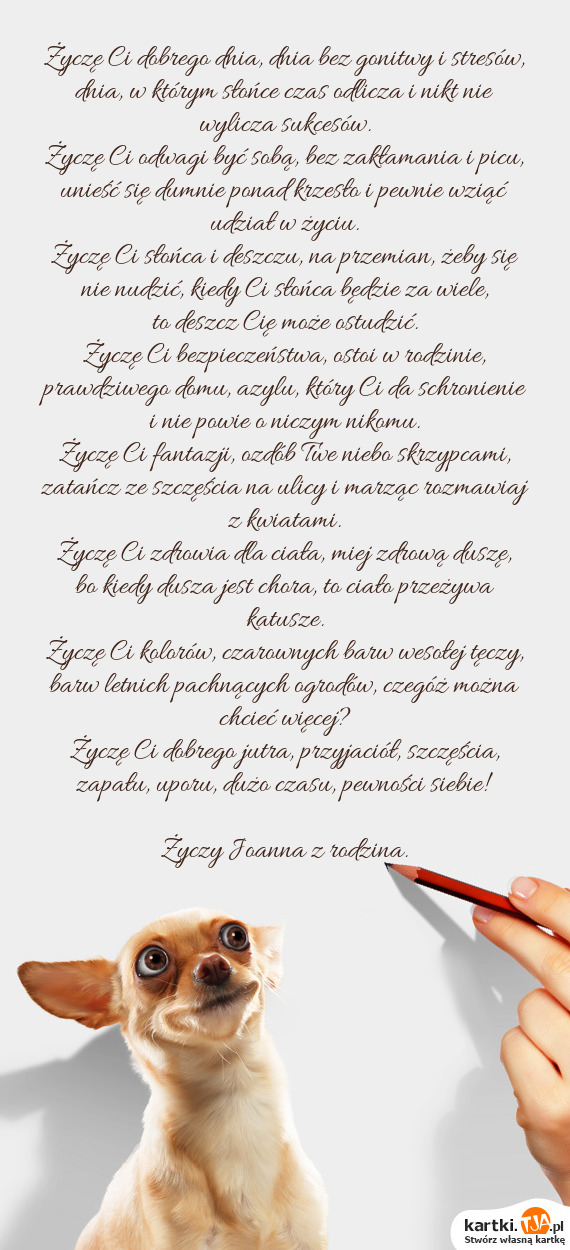 Życzę Ci dobrego dnia, dnia bez gonitwy i stresów,
dnia, w którym słońce czas odlicza i nikt nie
wylicza sukcesów.
Życzę Ci odwagi być sobą, bez zakłamania i picu,
unieść się dumnie ponad krzesło i pewnie wziąć
udział w życiu.
Życzę Ci słońca i deszczu, na przemian, żeby się
nie nudzić, kiedy Ci słońca będzie za wiele,
to deszcz Cię może ostudzić.
Życzę Ci bezpieczeństwa, ostoi w rodzinie,
prawdziwego domu, azylu, który Ci da schronienie
i nie powie o niczym nikomu.
Życzę Ci fantazji, ozdób Twe niebo skrzypcami,
zatańcz ze szczęścia na ulicy i marząc rozmawiaj
z kwiatami.
Życzę Ci zdrowia dla ciała, miej zdrową duszę,
bo kiedy dusza jest chora, to ciało przeżywa
katusze.
Życzę Ci kolorów, czarownych barw wesołej tęczy,
barw letnich pachnących ogrodów, czegóż można
chcieć więcej?
Życzę Ci dobrego jutra, przyjaciół, szczęścia,
zapału, uporu, dużo czasu, pewności siebie!
Życzy Joanna z rodzina.
kartki.TJA.pl
Stwórz własną kartkę